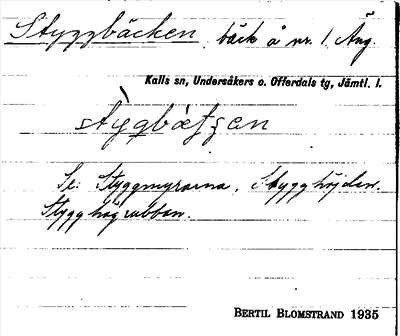 Styggbäcken, bäck å nr. 1 Äng.
Kalls sn, Undersåkers o. Offerdals tg, Jämtl. l.
stỳgbætʃen
Se: Styggmyrarna, Stygghöjden.
Stygghögrubban.
BERTIL BLOMSTRAND 1935